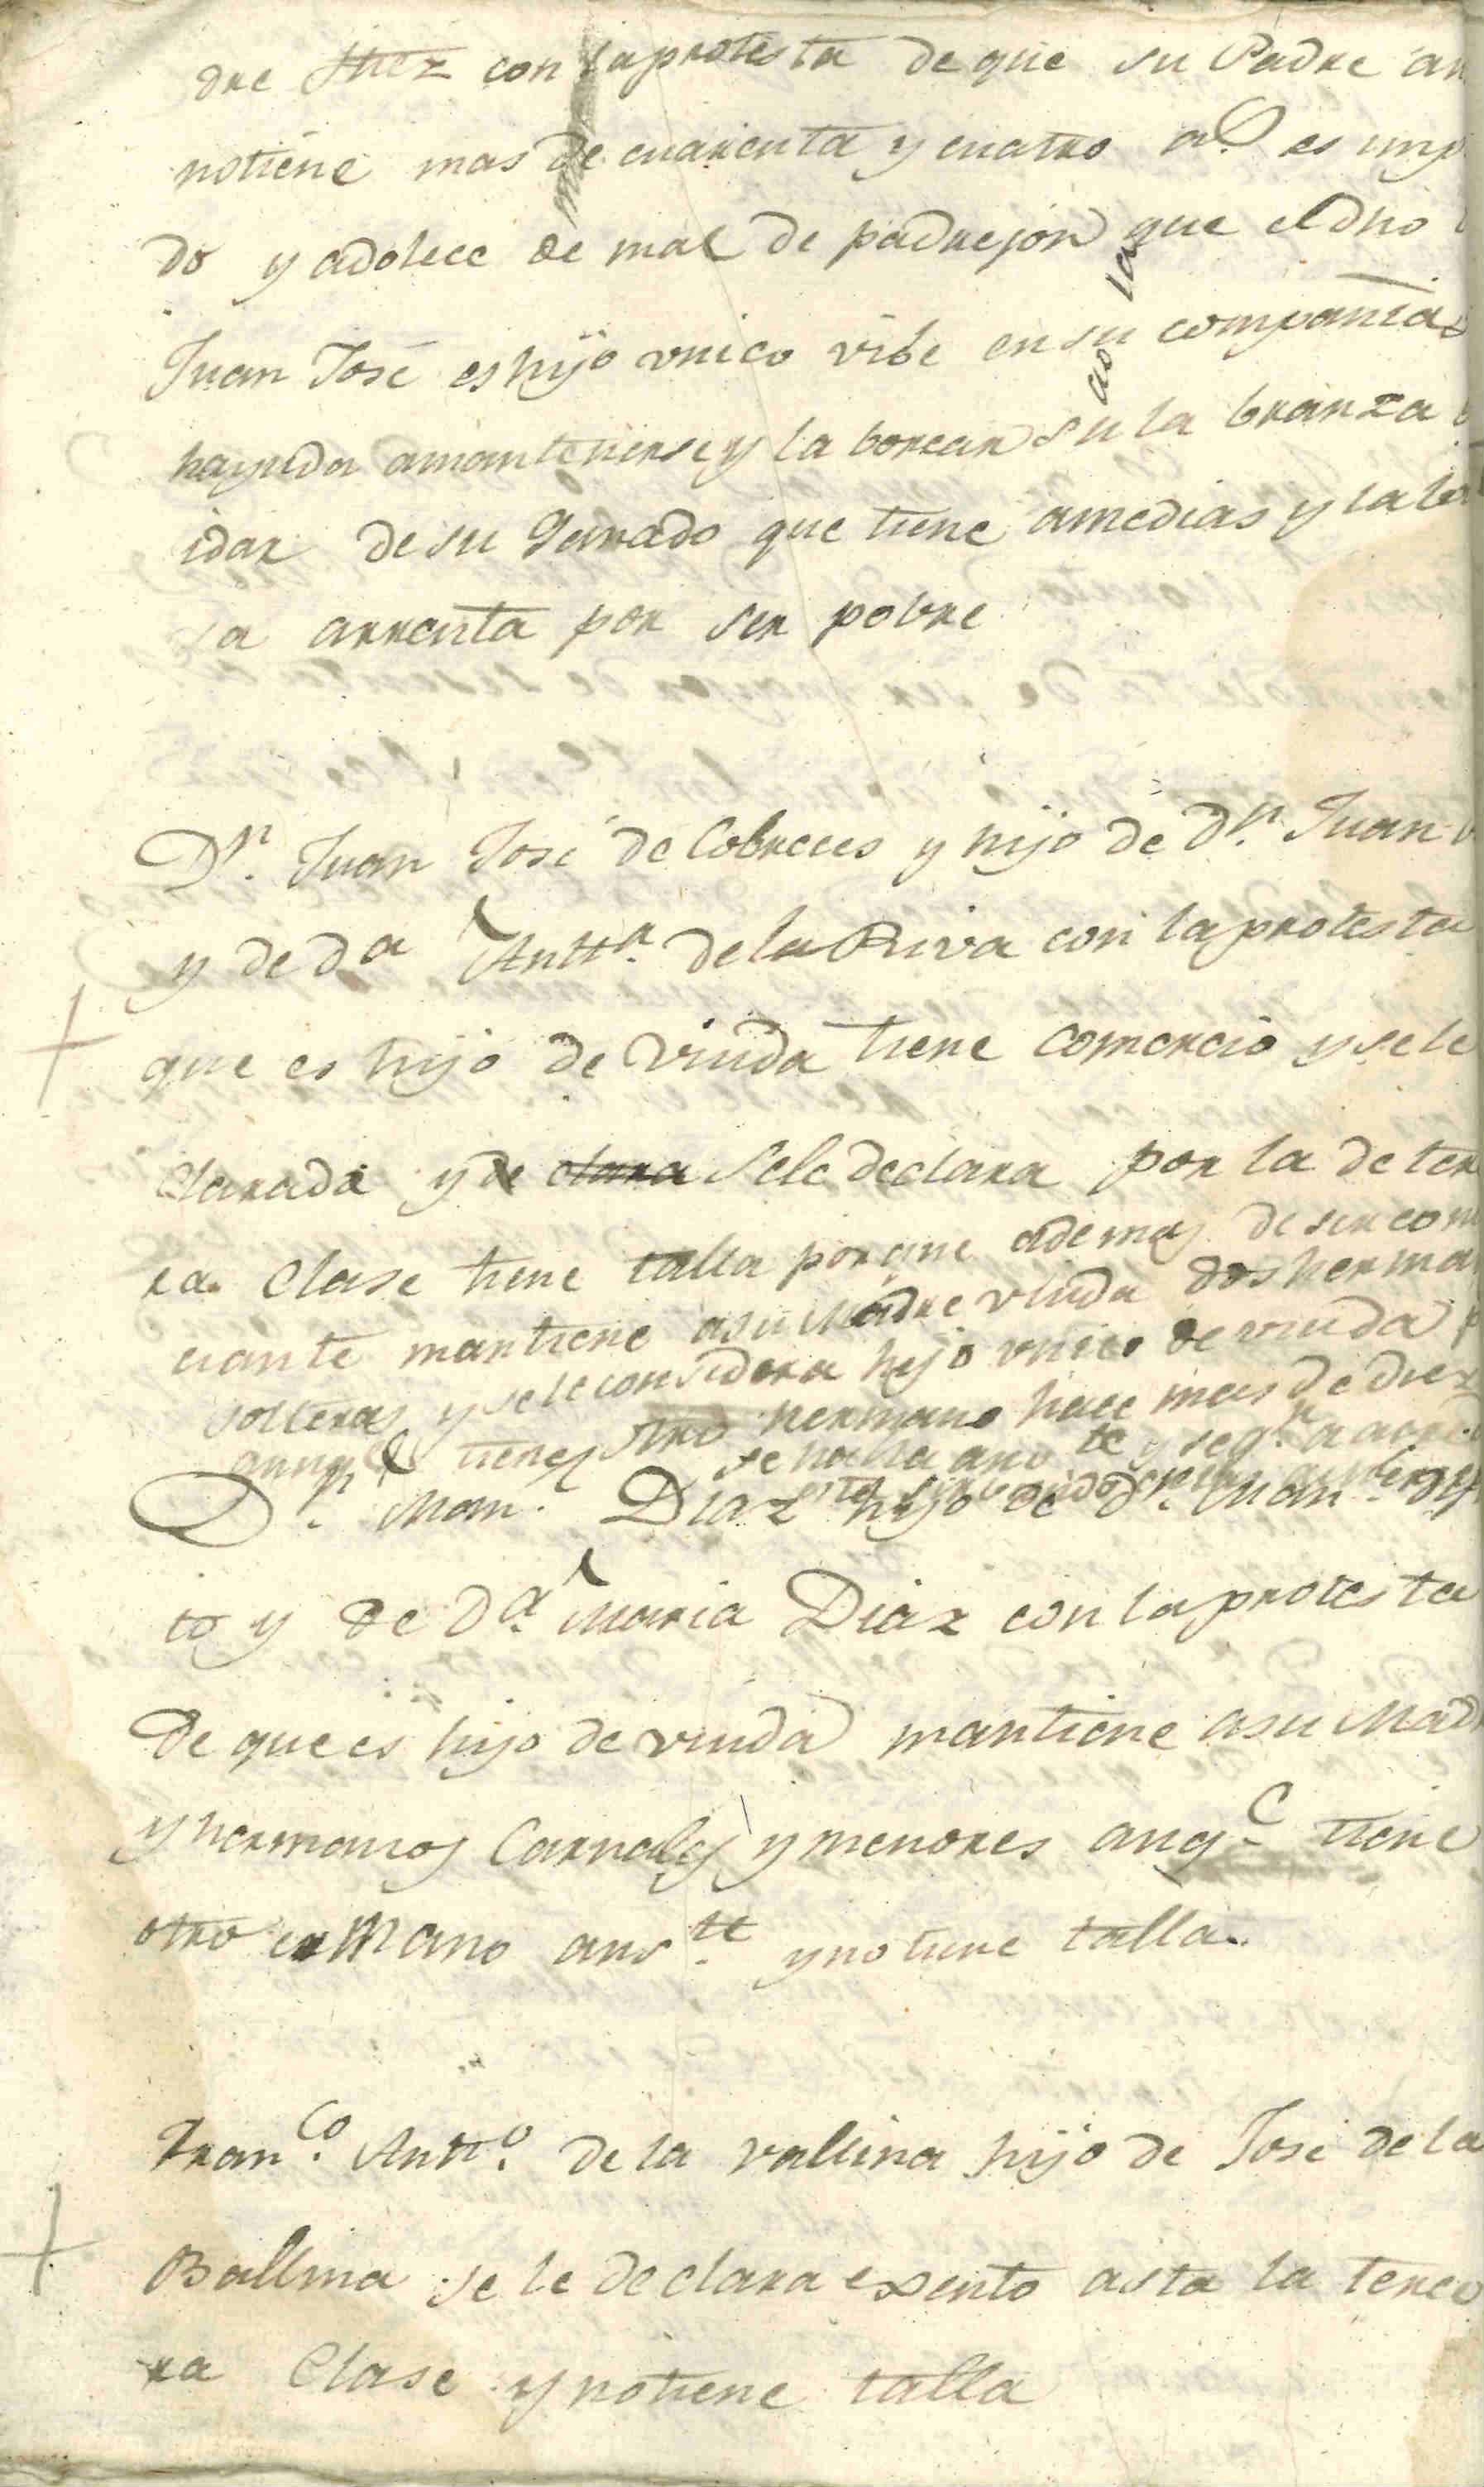 dre Saez con la protesta de que su Padre au
notiene mas de cuarenta y cuatro a.s es imp
do y adolece de mal de padrejon que el dho
Juan José es hijo vnico vibe en su compañia
hayuda amantenerse y la borear su la branza
idar de su Ganado que tiene amedias y la la
sa arrenta por ser pobre
Dn. Juan José de Cobreces y hijo de dn. Juan
y de da Antta. de la Riva con la protesta
que es hijo de viuda tiene comercio y se le
clarada y de clara Sele declara por la de ter
ra. Clase tiene talla porque ademas de ser com
ciante mantiene asu Madre viuda dos herma
solteras y sele considera hijo vnico de viuda p
aunqe tiene otro hermano hace mas de diez
se halla aus te y segn
Dn. Man. Diaz hijo de dn. Manl.
to y de Da. Maria Diaz con la protesta
De que es hijo de viuda mantiene asu Mad
y hermanos Carnales y menores auqe tiene
otro erMano aus.te y no tiene talla.
Franco. Antto. de la vallina hijo de José de la
Ballina se le declara exento asta la terce
ra Clase y notiene talla